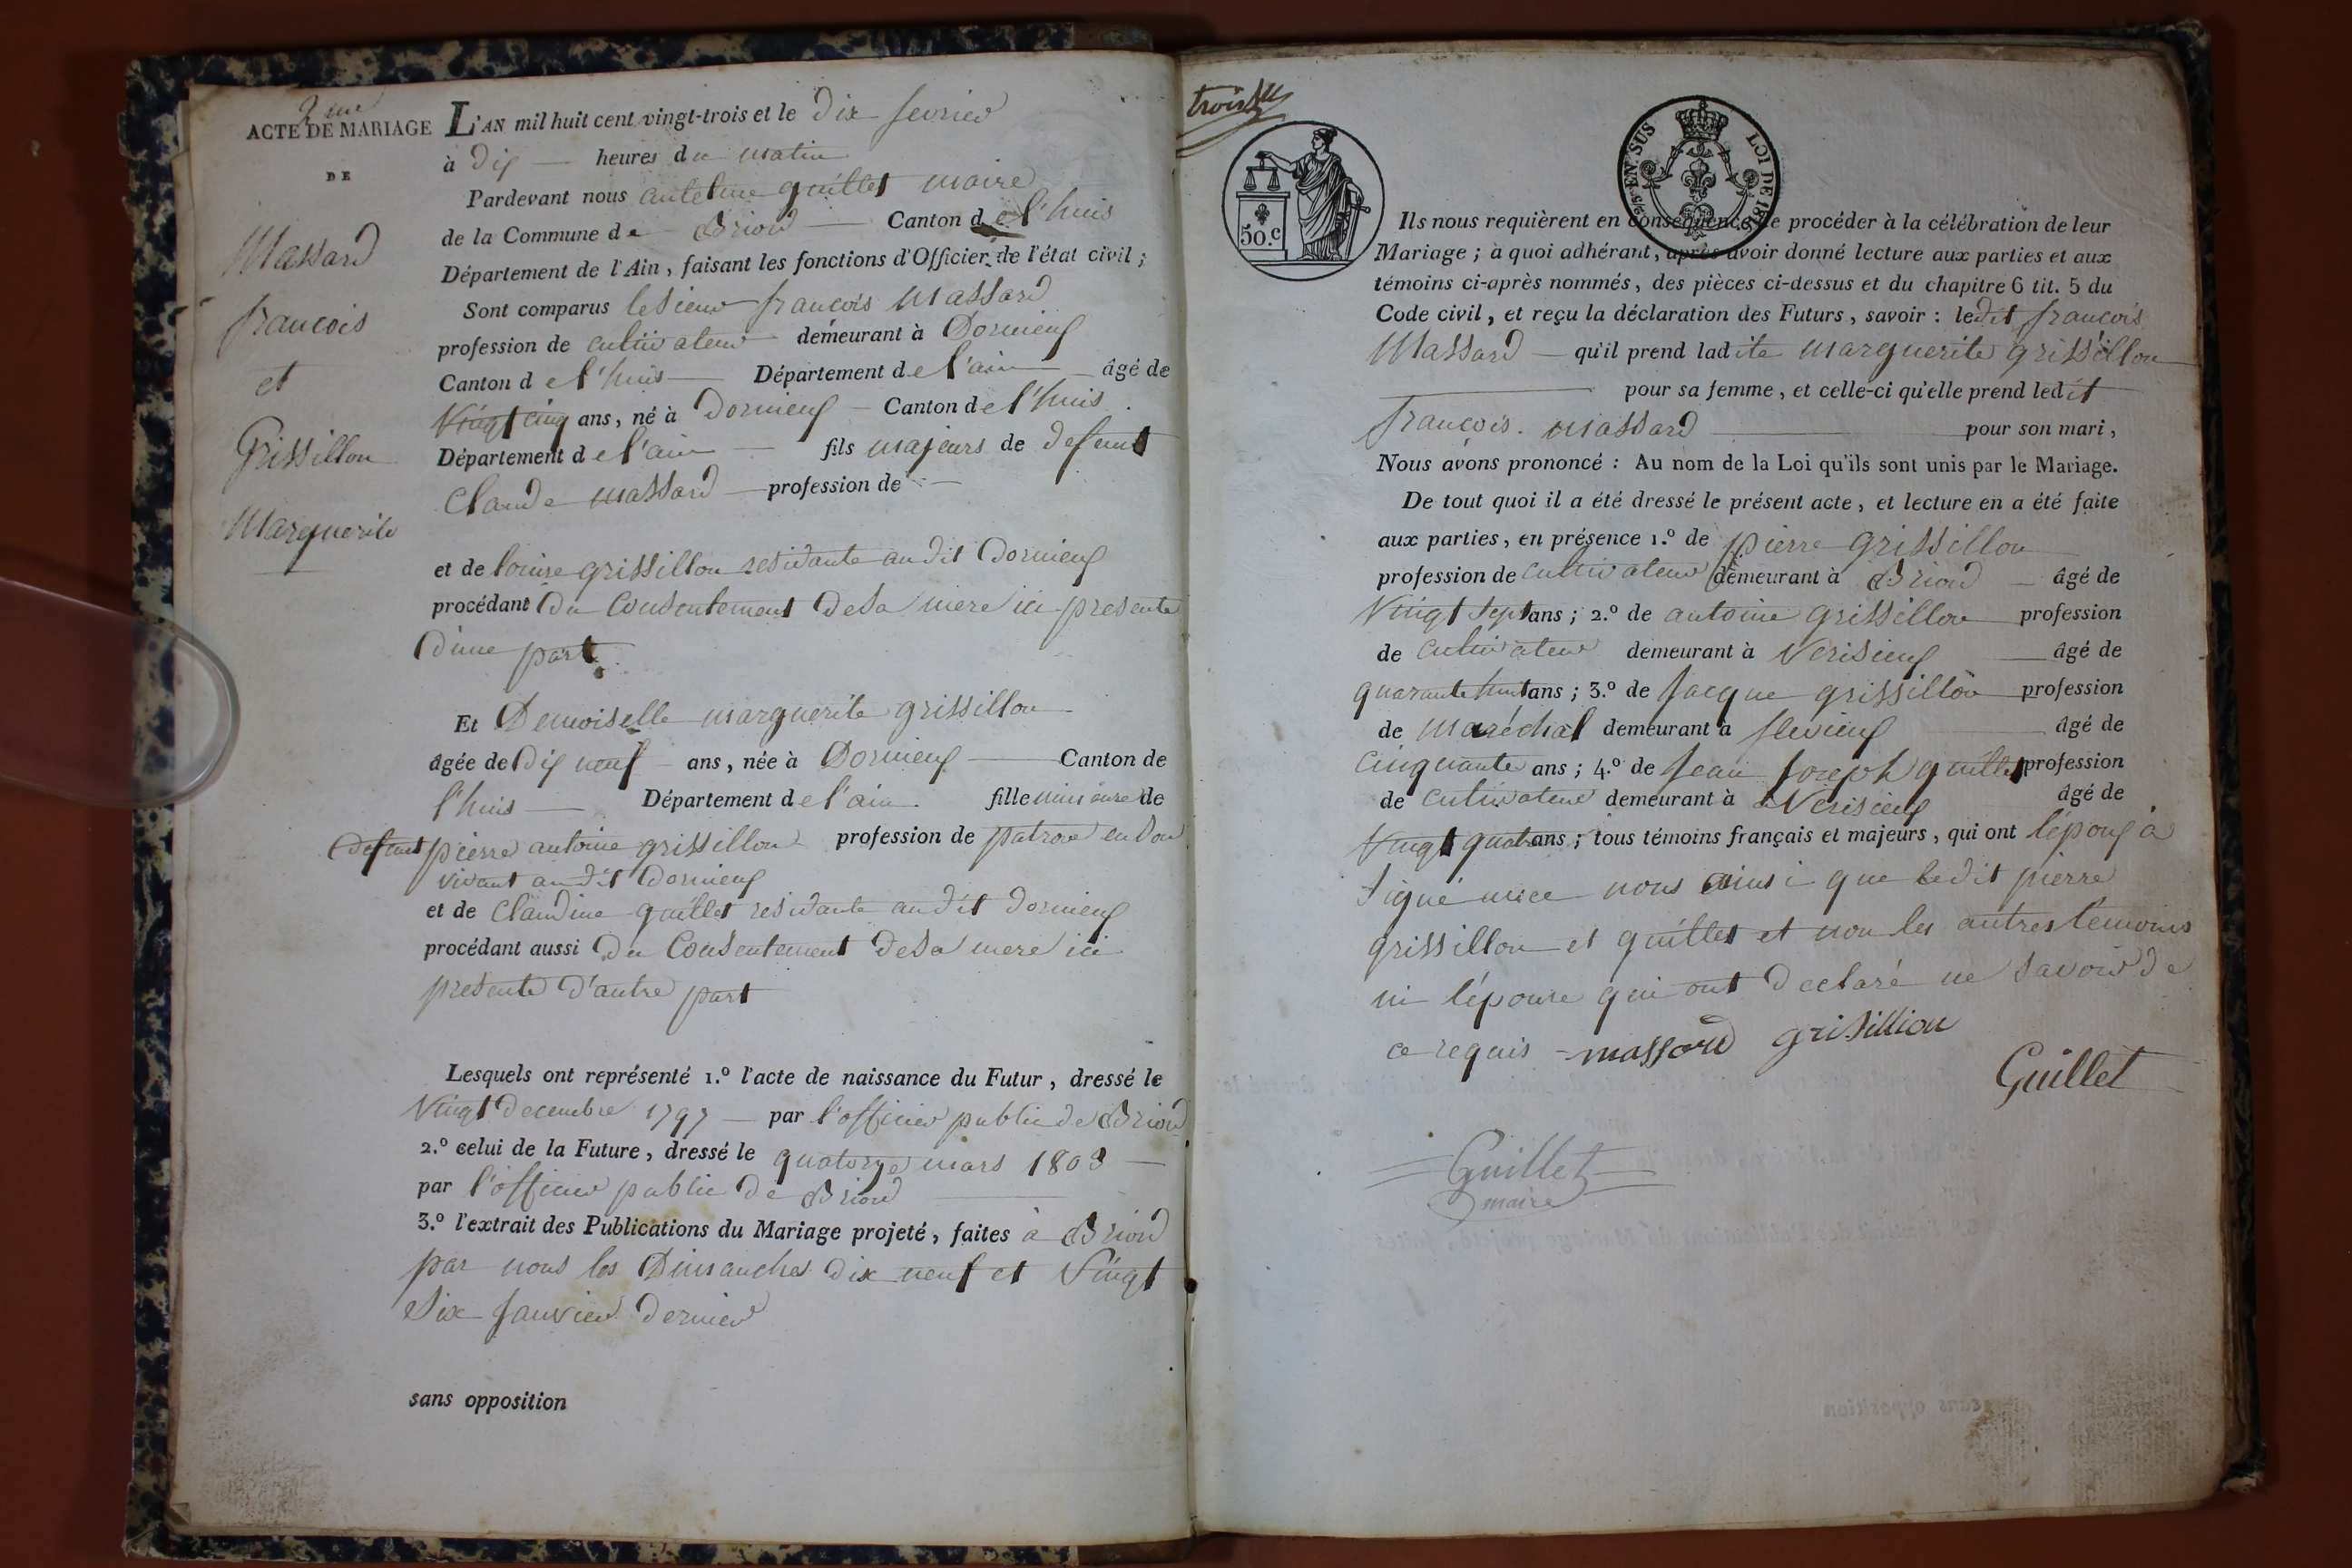 2me
ACTE DE MARIAGE
DE
Massard
francois
et
Grissillon
Marguerite
L'AN mil huit cent vingt-trois et le dix fevrier
à dix heures du matin
Pardevant nous antelme quillet maire
de la Commune de Briord Canton de l'huis
Département de l'Ain, faisant les fonctions d'Officier de l'état civil;
Sont comparus le Sieur francois Massard
profession de cultivateur demeurant à Dornieux
Canton de l'huis Département de l'ain âgé de
Vingt cinq ans, né à Dornieux Canton de l'huis
Département de l'ain fils majeurs de defunt
Claude massard profession de
et de louise grissillon residante audit Dornieux
procédant du Consentement de Sa mere ici presente
d'une part
Et Demoiselle marguerite grissillon
âgée de dix neuf ans, née à Dornieux Canton de
l'huis Département de l'ain. fille mineure de
defunt pierre antoine grissillon profession de patron en Son
vivant audit Dornieux
et de Claudine quillet residante audit dornieux
procédant aussi du Consentement de Sa mere ici
presente d'autre part
Lesquels ont représenté 1.º l'acte de naissance du Futur, dressé le
Vingt decembre 1797 par l'officier public de Briord
2.º celui de la Future, dressé le quatorze mars 1803
par l'officier public de Briord
3.º l'extrait des Publications du Mariage projeté, faites à Briord
par nous les Dimanches dix neuf et Vingt
Six Janvier dernier
sans opposition
trois
50.C
2/5 EN SUS
LOI DE 181
Ils nous requièrent en conséquence de procéder à la célébration de leur
Mariage; à quoi adhérant, après avoir donné lecture aux parties et aux
témoins ci-après nommés, des pièces ci-dessus et du chapitre 6 tit. 5 du
Code civil, et reçu la déclaration des Futurs, savoir: ledit francois
Massard qu'il prend ladite marguerite grissillon
pour sa femme, et celle-ci qu'elle prend ledit
francois. massard pour son mari,
Nous avons prononcé: Au nom de la Loi qu'ils sont unis par le Mariage.
De tout quoi il a été dressé le présent acte, et lecture en a été faite
aux parties, en présence 1.º de pierre grissillon
profession de cultivateur demeurant à Briord âgé de
Vingt Sept ans; 2.º de antoine grissillon profession
de cultivateur demeurant à Verisieux âgé de
quarante huit ans; 3.º de Jacque grissillon profession
de maréchal demeurant à flevieux âgé de
Cinquante ans; 4.º de Jean Joseph quillet profession
de cultivateur demeurant à Verisieux âgé de
Vingt quatre ans; tous témoins français et majeurs, qui ont l'époux à
Signé avec nous ainsi que ledit pierre
grissillon et quillet et non les autres témoins
ni l'épouse qui ont declaré ne Savoir de
ce requis massard grisillion
Guillet
Guillet
maire